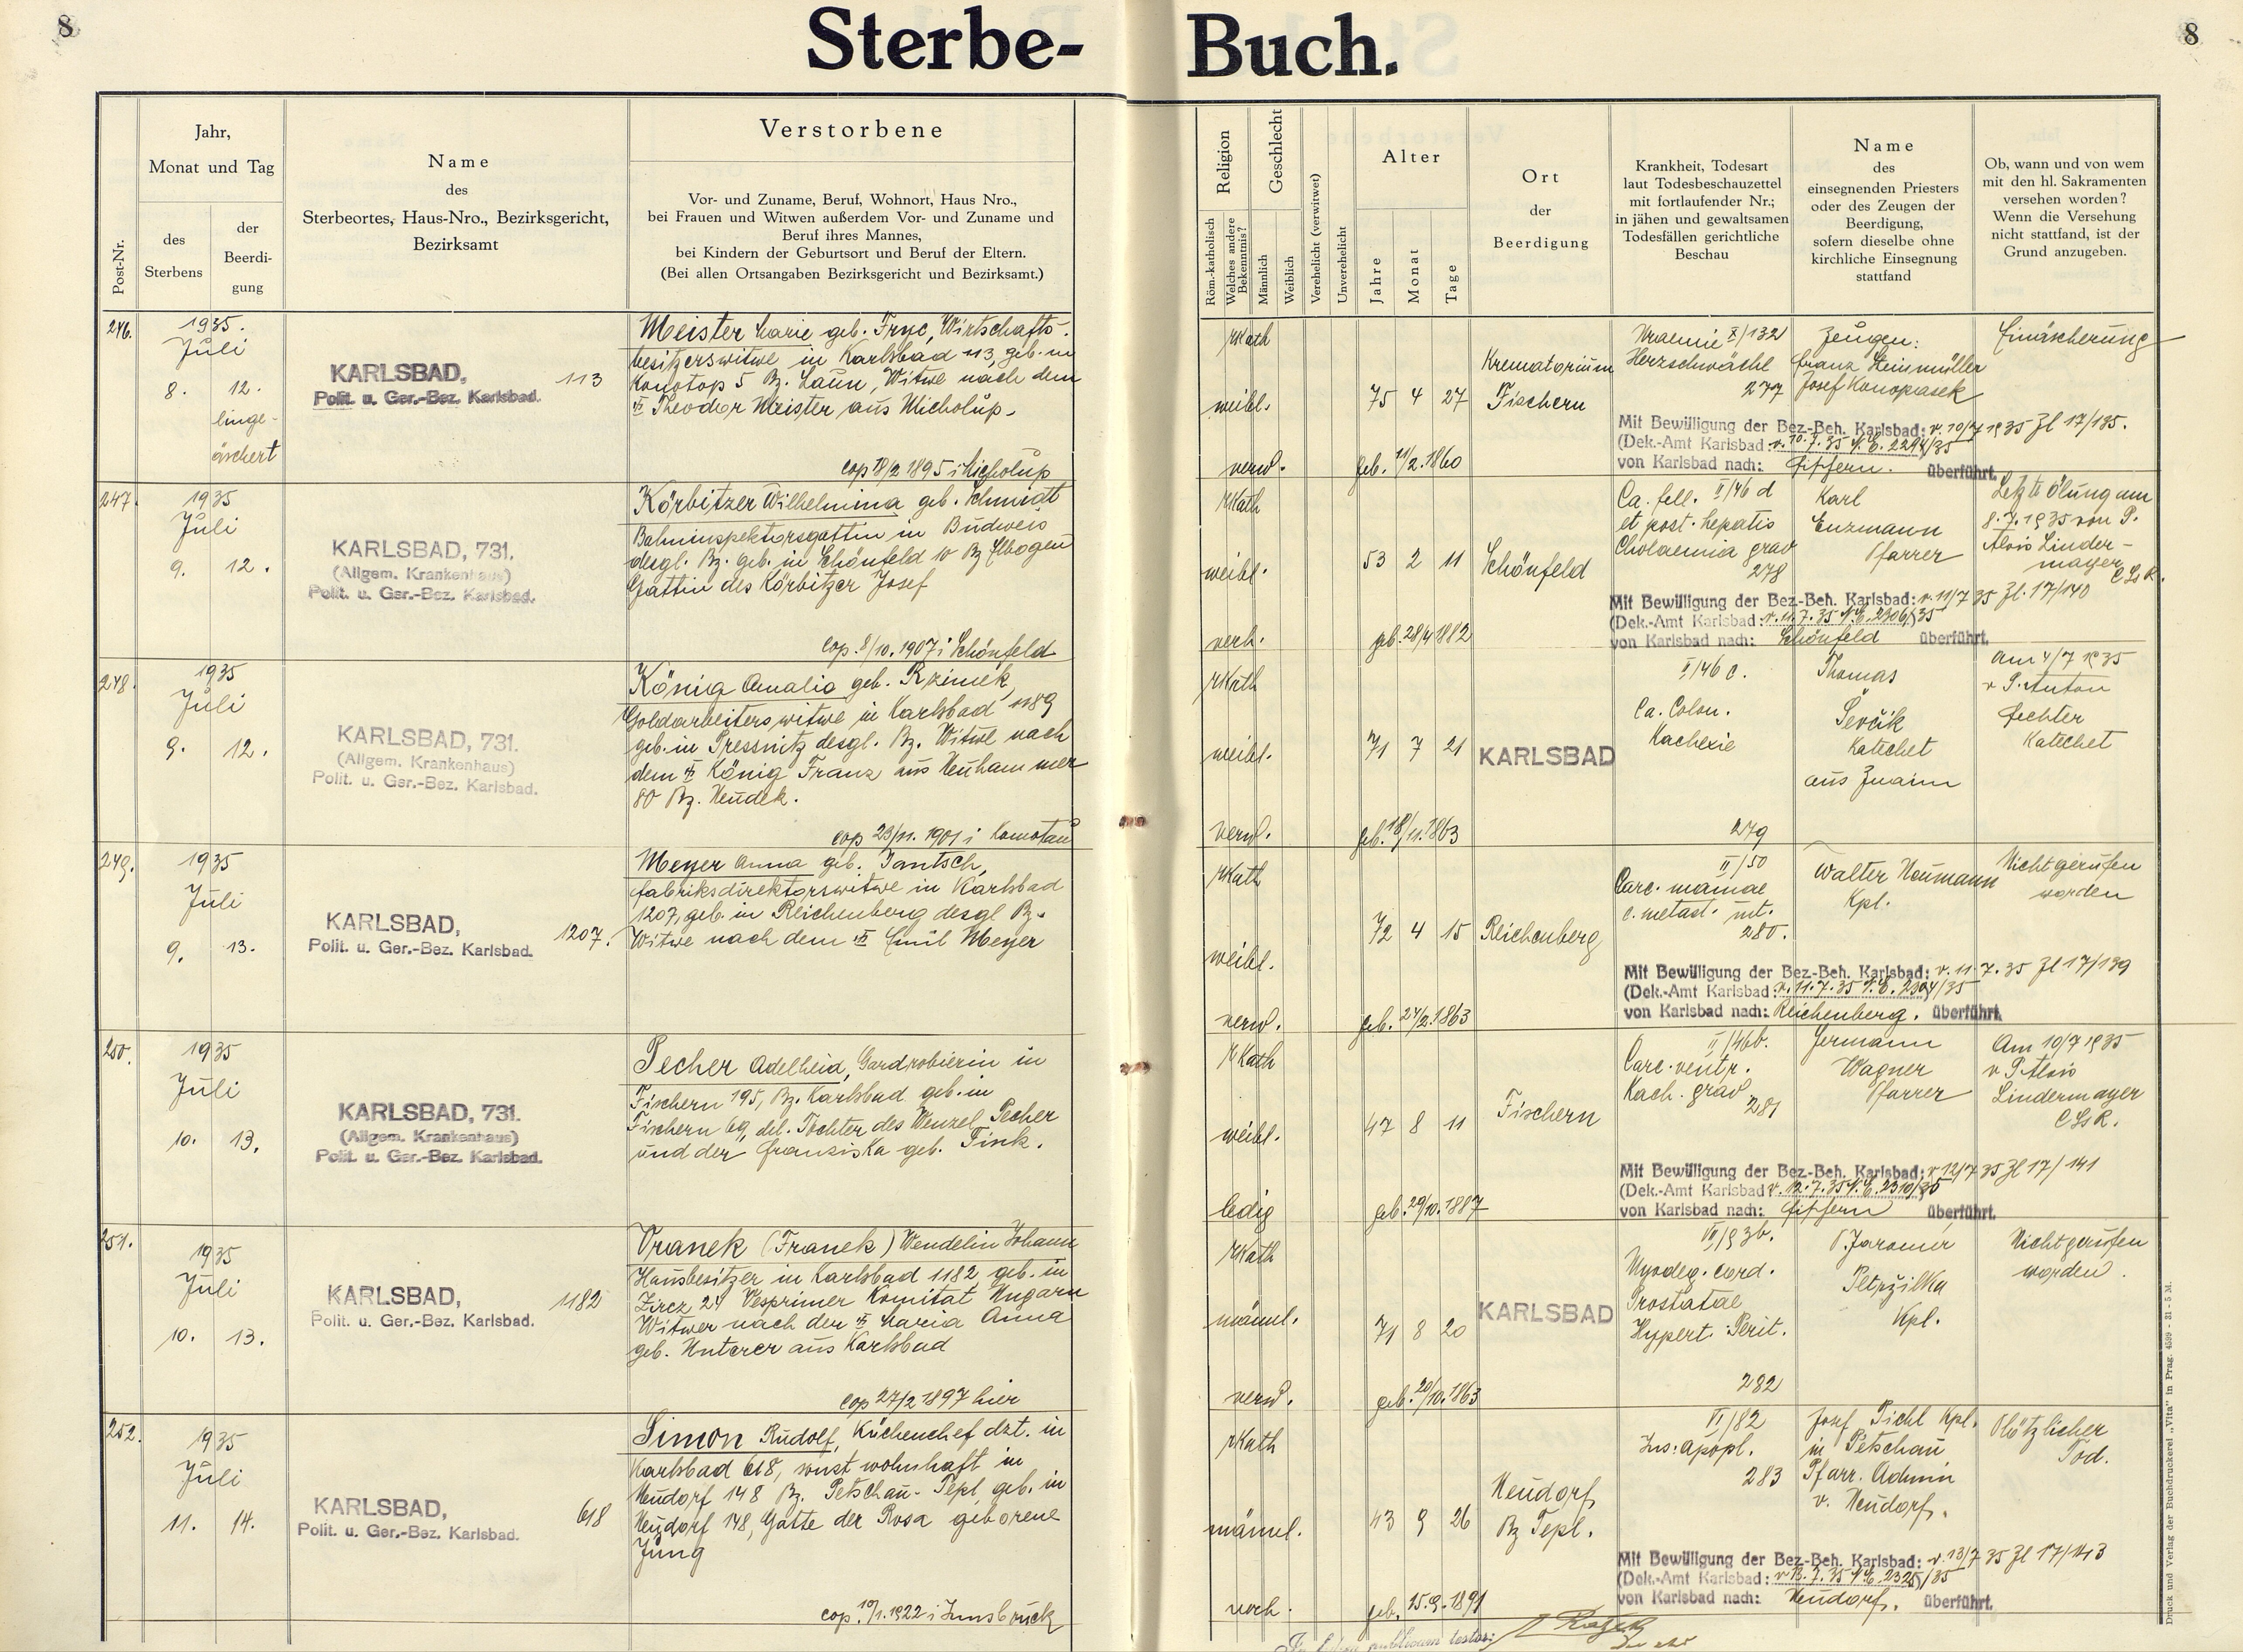 8
Sterbe- Buch.
8
Post-Nr.
Jahr,
Monat und Tag
des
Sterbens
der
Beerdi-
gung
Name
des
Sterbeortes, Haus-Nro., Bezirksgericht,
Bezirksamt
Verstorbene
Vor- und Zuname, Beruf, Wohnort, Haus Nro.,
bei Frauen und Witwen außerdem Vor- und Zuname und
Beruf ihres Mannes,
bei Kindern der Geburtsort und Beruf der Eltern.
(Bei allen Ortsangaben Bezirksgericht und Bezirksamt.)
Religion
Röm.-katholisch
Welches andere
Bekenntnis?
Geschlecht
Männlich
Weiblich
Verehelicht (verwitwet)
Unverehelicht
Alter
Jahre
Monat
Tage
Ort
der
Beerdigung
Krankheit, Todesart
laut Todesbeschauzettel
mit fortlaufender Nr.;
in jähen und gewaltsamen
Todesfällen gerichtliche
Beschau
Name
des
einsegnenden Priesters
oder des Zeugen der
Beerdigung,
sofern dieselbe ohne
kirchliche Einsegnung
stattfand
Ob, wann und von wem
mit den hl. Sakramenten
versehen worden?
Wenn die Versehung
nicht stattfand, ist der
Grund anzugeben.
246.
1935.
Juli
8. 12.
einge-
äschert
KARLSBAD, 113
Polit. u. Ger.-Bez. Karlsbad.
Meister Marie geb. Fryc, Wirtschafts-
besitzerswitwe in Karlsbad 113, geb. in
Konotop 5 Bz. Laun, Witwe nach dem
Theodor Meister aus Micholup.
cop 18/2 1895 i Micholup
rKath
weibl.
verw.
75 4 27
geb. 11/2. 1860
Krematorium
Fischern
Uraemie X/132
Herzschwäche
277
Zeugen:
Franz Heinmüller
Josef Konopasek
Einäscherung
Mit Bewilligung der Bez-Beh. Karlsbad: v. 10/7 1935 Zl 17/135.
(Dek.-Amt Karlsbad: v. 10.7.35 N.E. 2294/35
von Karlsbad nach: Fischern. überführt.
247.
1935
Juli
9. 12.
KARLSBAD, 731.
(Allgem. Krankenhaus)
Polit. u. Ger.-Bez. Karlsbad.
Körbitzer Wilhelmina geb. Schmidt
Bahninspektorsgattin in Budweis
desgl. Bz. geb. in Schönfeld 10 Bz Elbogen
Gattin des Körbitzer Josef
cop. 8/10. 1907 i Schönfeld
rKath
weibl.
verh.
53 2 11
geb. 28/4 1882
Schönfeld
Ca. fell. II/46 d
et post. hepatis
Cholaemia grav
278
Karl
Enzmann
Pfarrer
Letzte Ölung am
8.7.1935 von P.
Alois Linder-
mayer
C Ss R.
Mit Bewilligung der Bez-Beh. Karlsbad: v. 11/7 35 Zl. 17/140
(Dek.-Amt Karlsbad: v. 11.7.35 N.E. 2306/35
von Karlsbad nach: Schönfeld überführt.
248.
1935
Juli
9. 12.
KARLSBAD, 731.
(Allgem. Krankenhaus)
Polit. u. Ger.-Bez. Karlsbad.
König Amalia geb. Rzimek,
Goldarbeiterswitwe in Karlsbad 1189
geb. in Pressnitz desgl. Bz. Witwe nach
dem König Franz aus Neuhammer
80 Bz. Neudek.
cop 23/11. 1901 i Komotau
rKath
weibl.
verw.
71 7 21
geb. 18/11. 1863
KARLSBAD
II/46 c.
Ca. Colon.
Kachexie
279
Thomas
Ševčík
Katechet
aus Znaim
am 4/7 1935
v P. Anton
Fechter
Katechet
249.
1935
Juli
9. 13.
KARLSBAD, 1207.
Polit. u. Ger.-Bez. Karlsbad.
Meyer Anna geb. Jantsch,
Fabriksdirektorswitwe in Karlsbad
1207, geb. in Reichenberg desgl Bz.
Witwe nach dem Emil Meyer
rKath
weibl.
verw.
72 4 15
geb. 24/2. 1863
Reichenberg
II/50
Carc. mamae
c. metast. int.
280.
Walter Neumann
Kpl.
Nicht gerufen
worden
Mit Bewilligung der Bez-Beh. Karlsbad: v. 11.7.35 Zl 17/139
(Dek.-Amt Karlsbad: v. 11.7.35 N.E. 2304/35
von Karlsbad nach: Reichenberg. überführt.
250.
1935
Juli
10. 13.
KARLSBAD, 731.
(Allgem. Krankenhaus)
Polit. u. Ger.-Bez. Karlsbad.
Pecher Adelheid, Gardrobierin in
Fischern 195, Bz. Karlsbad geb. in
Fischern 69, del. Tochter des Wenzel Pecher
und der Franziska geb. Fink.
rKath
weibl.
ledig
47 8 11
geb. 29/10. 1887
Fischern
II/46b.
Carc. ventr.
Kach. grav
281
Hermann
Wagner
Pfarrer
Am 10/7 1935
v P. Alois
Lindermayer
C Ss R.
Mit Bewilligung der Bez-Beh. Karlsbad: v 12/7 35 Zl 17/141
(Dek.-Amt Karlsbad v. 12.7.35 N.E. 2310/35
von Karlsbad nach: Fischern überführt.
251.
1935
Juli
10. 13.
KARLSBAD, 1182
Polit. u. Ger.-Bez. Karlsbad.
Vranek (Franek) Wendelin Johann
Hausbesitzer in Karlsbad 1182 geb. in
Zircz 24 Vesprimer Komitat Ungarn
Witwer nach der Maria Anna
geb. Unterer aus Karlsbad
cop 27/2 1897 hier
rKath
männl.
verw.
71 8 20
geb. 20/10. 1863
KARLSBAD
VII/93b.
Myodeg. cord.
Prostatae
Hypert. Perit.
282
P. Jaromir
Petržilka
Kpl.
Nicht gerufen
worden.
252.
1935
Juli
11. 14.
KARLSBAD, 618
Polit. u. Ger.-Bez. Karlsbad.
Simon Rudolf, Küchenchef dzt. in
Karlsbad 618, sonst wohnhaft in
Neudorf 148 Bz. Petschau-Tepl, geb. in
Neudorf 148, Gatte der Rosa geborene
Jung
cop. 10/1. 1922 i Innsbruck
rKath
männl.
verh.
43 9 26
geb. 15.9. 1891
Neudorf
Bz Tepl.
VI/82
Ins: apopl.
283
Josef Pichl Kpl.
in Petschau
Pfarr. Admin
v. Neudorf.
Plötzlicher
Tod.
Mit Bewilligung der Bez-Beh. Karlsbad: v. 13/7 35 Zl 17/143
(Dek.-Amt Karlsbad: v 13.7.35 N.E. 2325/35
von Karlsbad nach: Neudorf. überführt.
Druck und Verlag der Buchdruckerei „Vita" in Prag. 4599 - 31 - 5 M.